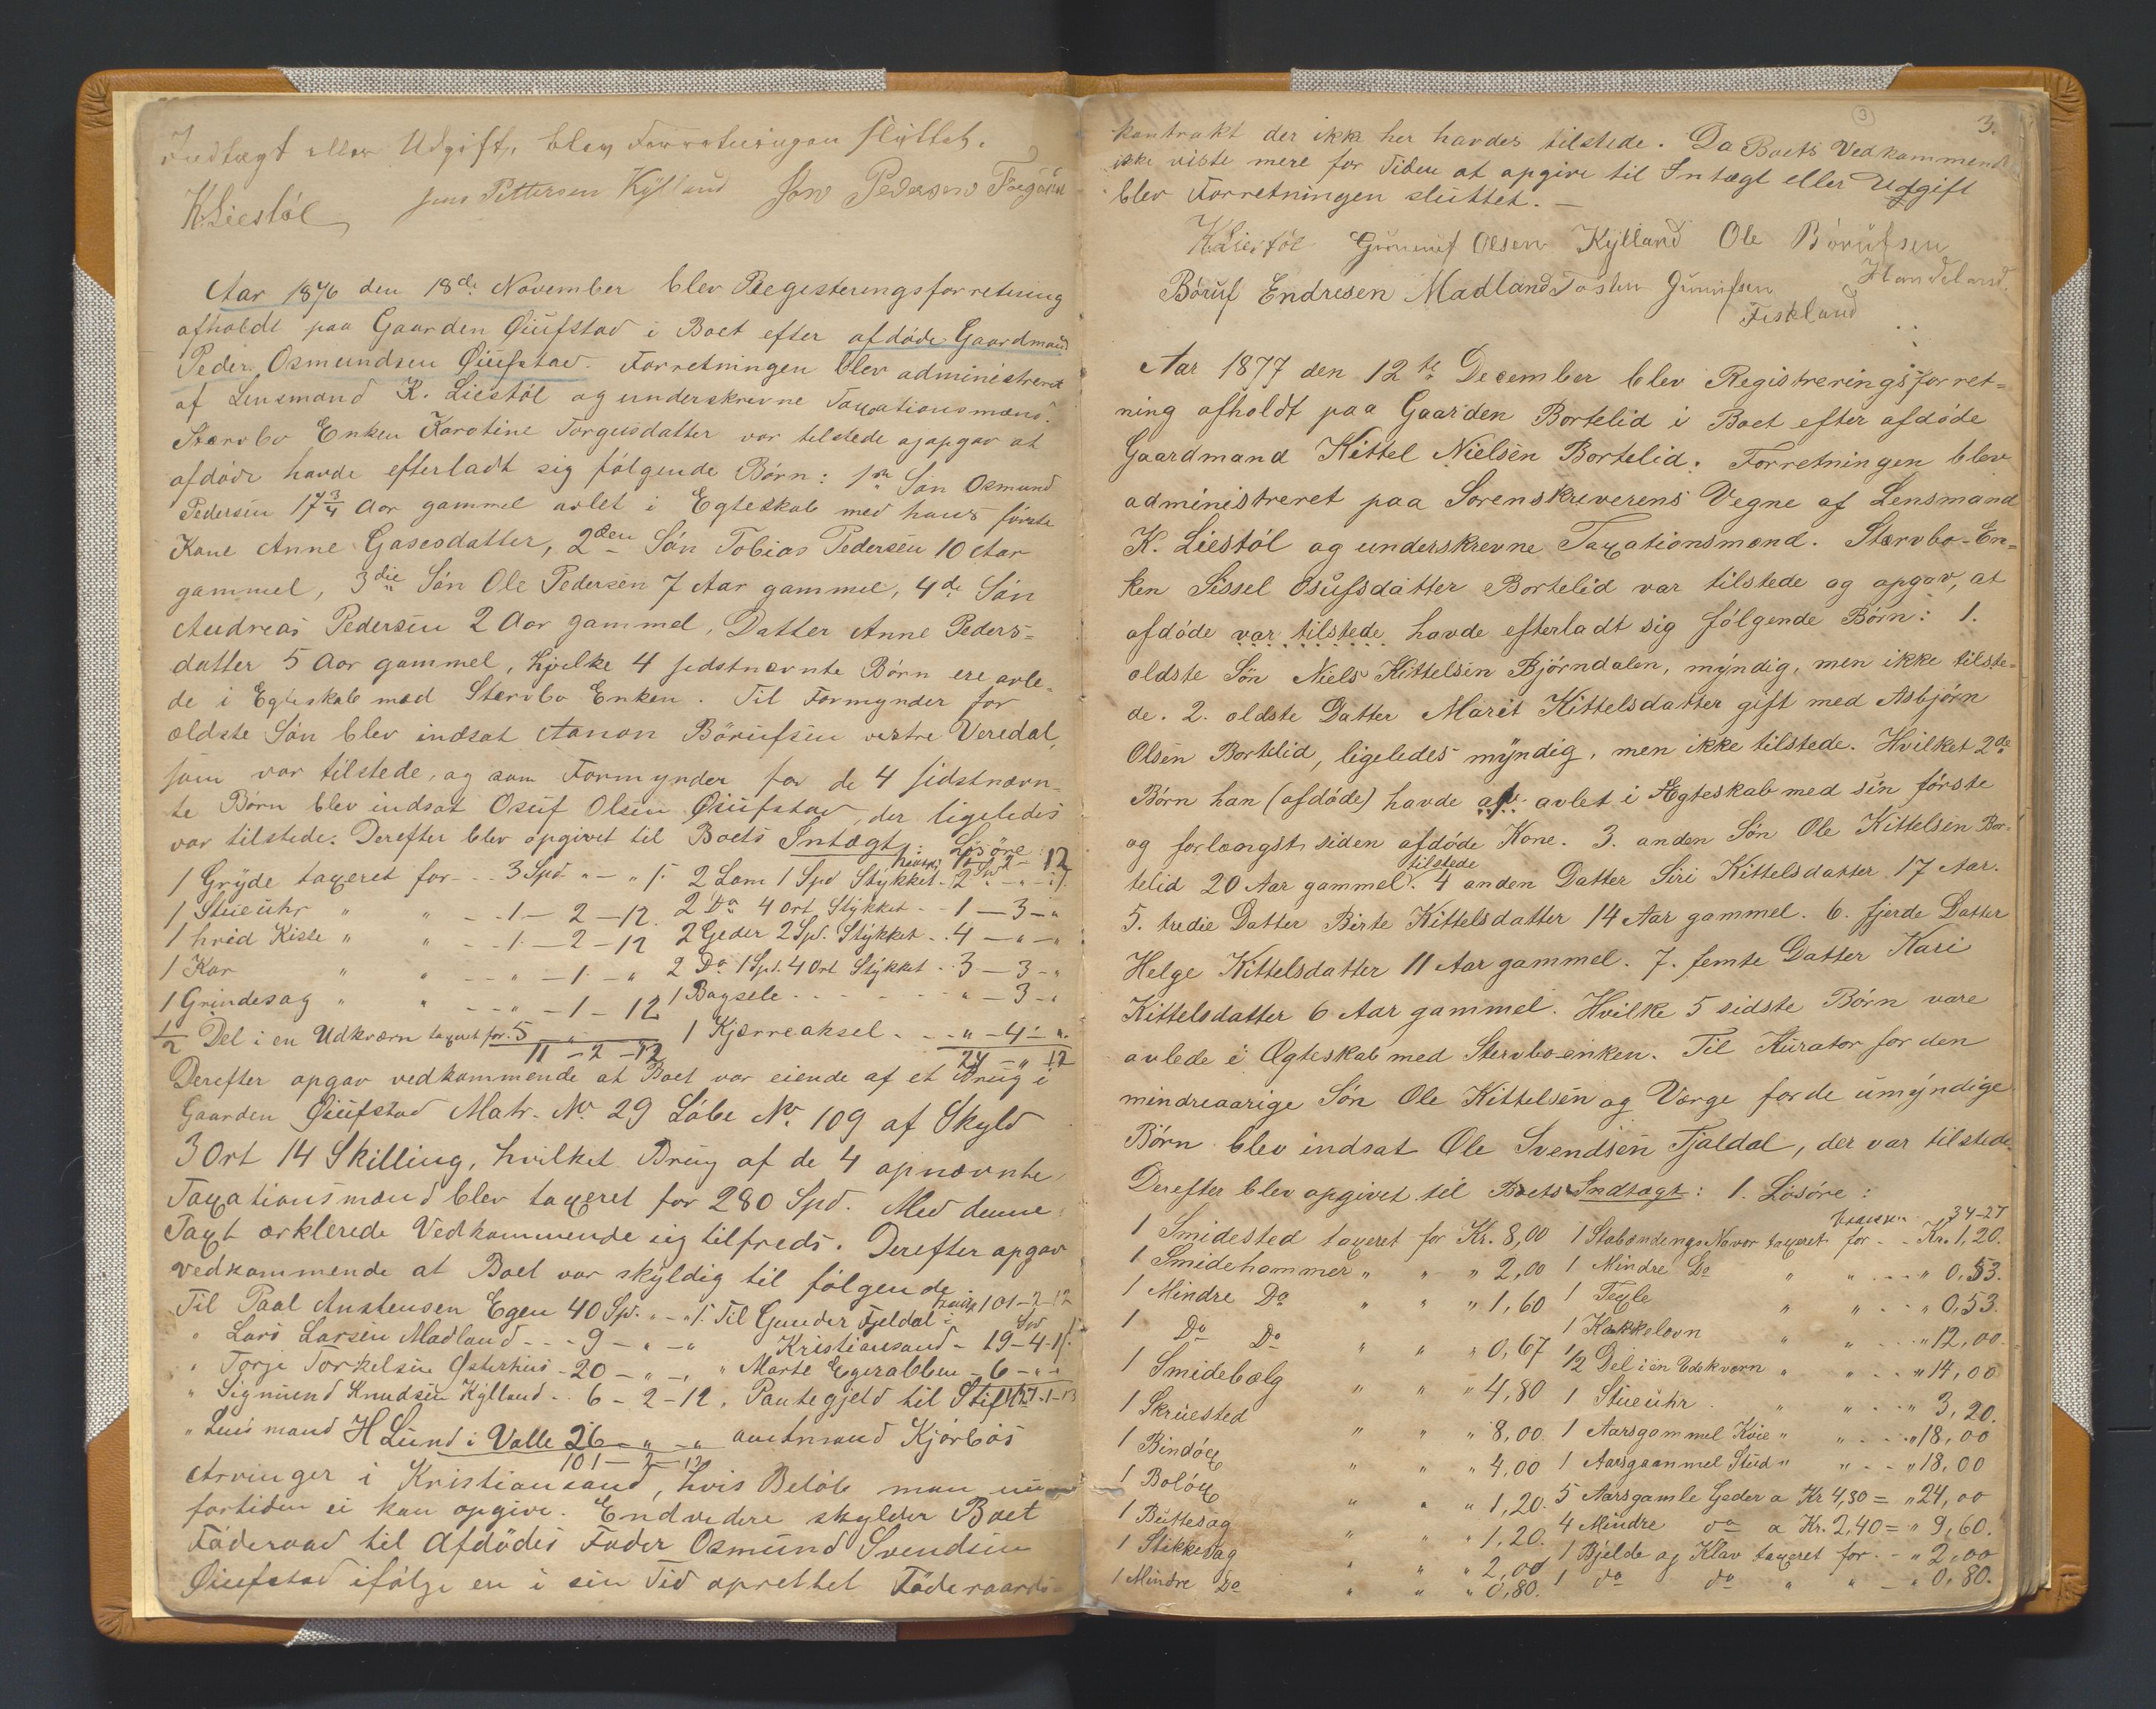 Indtægt eller Udgift, blev Forretningen sluttet.
K. Liestøl Jens Pettersen Kylland Jon Pedersen
Aar 1876 den 18de November blev Registeringsforretning
afholdt paa Gaarden Øiufstad i Boet efter afdøde Gaardmand
Peder Osmundsen Øiufstad. Forretningen blev administreret
af Lensmand K. Liestøl og underskrevne Taxationsmænd.
Stervbo Enken Karotine Torgusdatter var tilstede og opgav at
afdøde havde efterladt sig følgende Børn: 1ste Søn Osmund
Pedersen 17 3/4 Aar gammel avlet i Egteskab med hans første
Kone Anne Gasesdatter, 2den Søn Tobias Pedersen 10 Aar
gammel, 3die Søn Ole Pedersen 7 Aar gammel, 4de Søn
Andreas Pedersen 2 Aar gammel, Datter Anne Peders-
datter 5 Aar gammel, hvilke 4 sidstnævnte Børn ere avle-
de i Egteskab med Stervbo Enken. Til Formynder for
ældste Søn blev indsat Aanon Børufsen vestre Veredal,
som var tilstede, og som Formynder for de 4 sidstnævn-
te Børn blev indsat Osuf Olsen Øiufstad, der ligeledes
var tilstede. Derefter blev opgivet til Boets Intægt: Løsøre:
1 Gryde taxeret for - - 3 Spd. " - " ſ. 2 Lam 1 Spd Stykket - 2 Spd - " - "
1 Stueuhr " " - - 1 - 2 - 12 2 Do 4 Ort Stykket - - 1 - 3 - "
1 hvid Kiste " " - - 1 - 2 - 12 2 Geder 2 Spd. Stykket - - 4 - " - "
1 Kar " " - - " - 1 - " 2 Do 1 Spd. 4 Ort Stykket - - 3 - 3 - "
1 Grindesag " " - - " - 1 - 12 1 Bagsele - - - - " - 3 - "
1/2 Del i en Udkværn taxeret for 5 - " - " 1 Kjærreaksel - - " - 4 - "
11 - 2 - 12 24 - " - 12
Derefter opgav vedkommende at Boet var eiende af et Brug i
Gaarden Øiufstad Matr. No 29 Løbe No. 109 af Skyld
3 Ort 14 Skilling, hvilket Brug af de 4 opnævnte
Taxationsmænd blev taxeret for 280 Spd. Med denne
Taxt ærklerede Vedkommende sig tilfreds. Derefter opgav
vedkommende at Boet var skyldig til følgende
101 - 2 - 12
Til Paal Austensen Egen 40 Sp. " - " ſ. Til Gunder Fjeldal
" Lars Larsen Madland - - - 9 - " - " Kristiansand - 19 - 4 -
" Torje Torkelsen Østerhus - 20 - " - " " Marte Egerabben - 6 - " - "
" Sigmund Knudsen Kylland - - 6 - 2 - 12. Pantegjeld til Stift-
" Lensmand H Lund i Valle 26 - " - " amtmand Kjørbos
101 - 2 - 12
Arvinger i Kristiansand, hvis Beløb man nu
fortiden ei kan opgive. Endvidere skylder Boet
Føderaad til Afdødes Fader Osmund Svendsen
Øiufstad ifølge en i sin Tid oprettet Føderaads-
3.
3
kontrakt der ikke her havdes tilstede. Da Boets Vedkommende
ikke viste mere for Tiden at opgive til Intægt eller Udgift
blev Forretningen sluttet. —
K Liestøl Gunuf Olsen Kylland Ole Børufsen
Handeland.
Børuf Endresen Madland Tosten Gunufsen
Fiskland
Aar 1877 den 12te December blev Registreringsforret-
ning afholdt paa Gaarden Bortelid i Boet efter afdøde
Gaardmand Kittel Nielsen Bortelid. Forretningen blev
administreret paa Sorenskriverens Vegne af Lensmand
K. Liestøl og underskrevne Taxationsmænd. Stervbo-En-
ken Sissel Osufsdatter Bortelid var tilstede og opgav, at
afdøde var tilstede havde efterladt sig følgende Børn: 1.
ældste Søn Niels Kittelsen Bjørndalen, myndig, men ikke tilste-
de. 2. ældste Datter Marit Kittelsdatter gift med Asbjørn
Olsen Bortelid, ligeledes myndig, men ikke tilstede. Hvilket 2de
Børn han (afdøde) havde af avlet i Ægteskab med sin første
og forlængst siden afdøde Kone. 3. anden Søn Ole Kittelsen Bor-
telid 20 Aar gammel. tilstede 4 anden Datter Siri Kittelsdatter 17 Aar.
5. tredie Datter Birte Kittelsdatter 14 Aar gammel. 6. fjerde Datter
Helge Kittelsdatter 11 Aar gammel. 7. femte Datter Kari
Kittelsdatter 6 Aar gammel. Hvilke 5 sidste Børn vare
avlede i Ægteskab med Stervbo-enken. Til Kurator for den
mindreaarige Søn Ole Kittelsen og Værge for de umyndige
Børn blev indsat Ole Svendsen Fjaldal, der var tilstede.
Derefter blev opgivet til Boets Indtægt: 1. Løsøre:
34-27
1 Smidested taxeret for Kr. 8,00 1 Stabændings Naver taxeret for - - Kr. 1,20.
1 Smidehammer " " " 2,00 1 Mindre Do " " - - - " 0,53.
1 Mindre Do " " " 1,60 1 Texle " " - - " 0,53.
1 Do Do " " " 0,67 1 Kakkelovn " " - - " 12,00.
1 Smidebælg " " " 4,80 1/2 Del i en Udekværn " " - - " 14,00
1 Skruested " " " 8,00. 1 Stueuhr " " - - " 3,20.
1 Bindøx " " " 4,00 1 Aarsgammel Kvie " " - - " 18,00
1 Boløx " " " 1,20. 1 Aarsgaammel Stud " " - - " 18,00
1 Buttesag " " " 1,20. 5 Aarsgamle Geder a Kr 4,80 = " 24,00
1 Stikkesag " " " 2,00 4 Mindre do a Kr. 2,40 = " 9,60.
1 Mindre Do " " " 0,80. 1 Bjelde og Klav taxeret for - - " 2,00
1 do do " " - " 0,80.